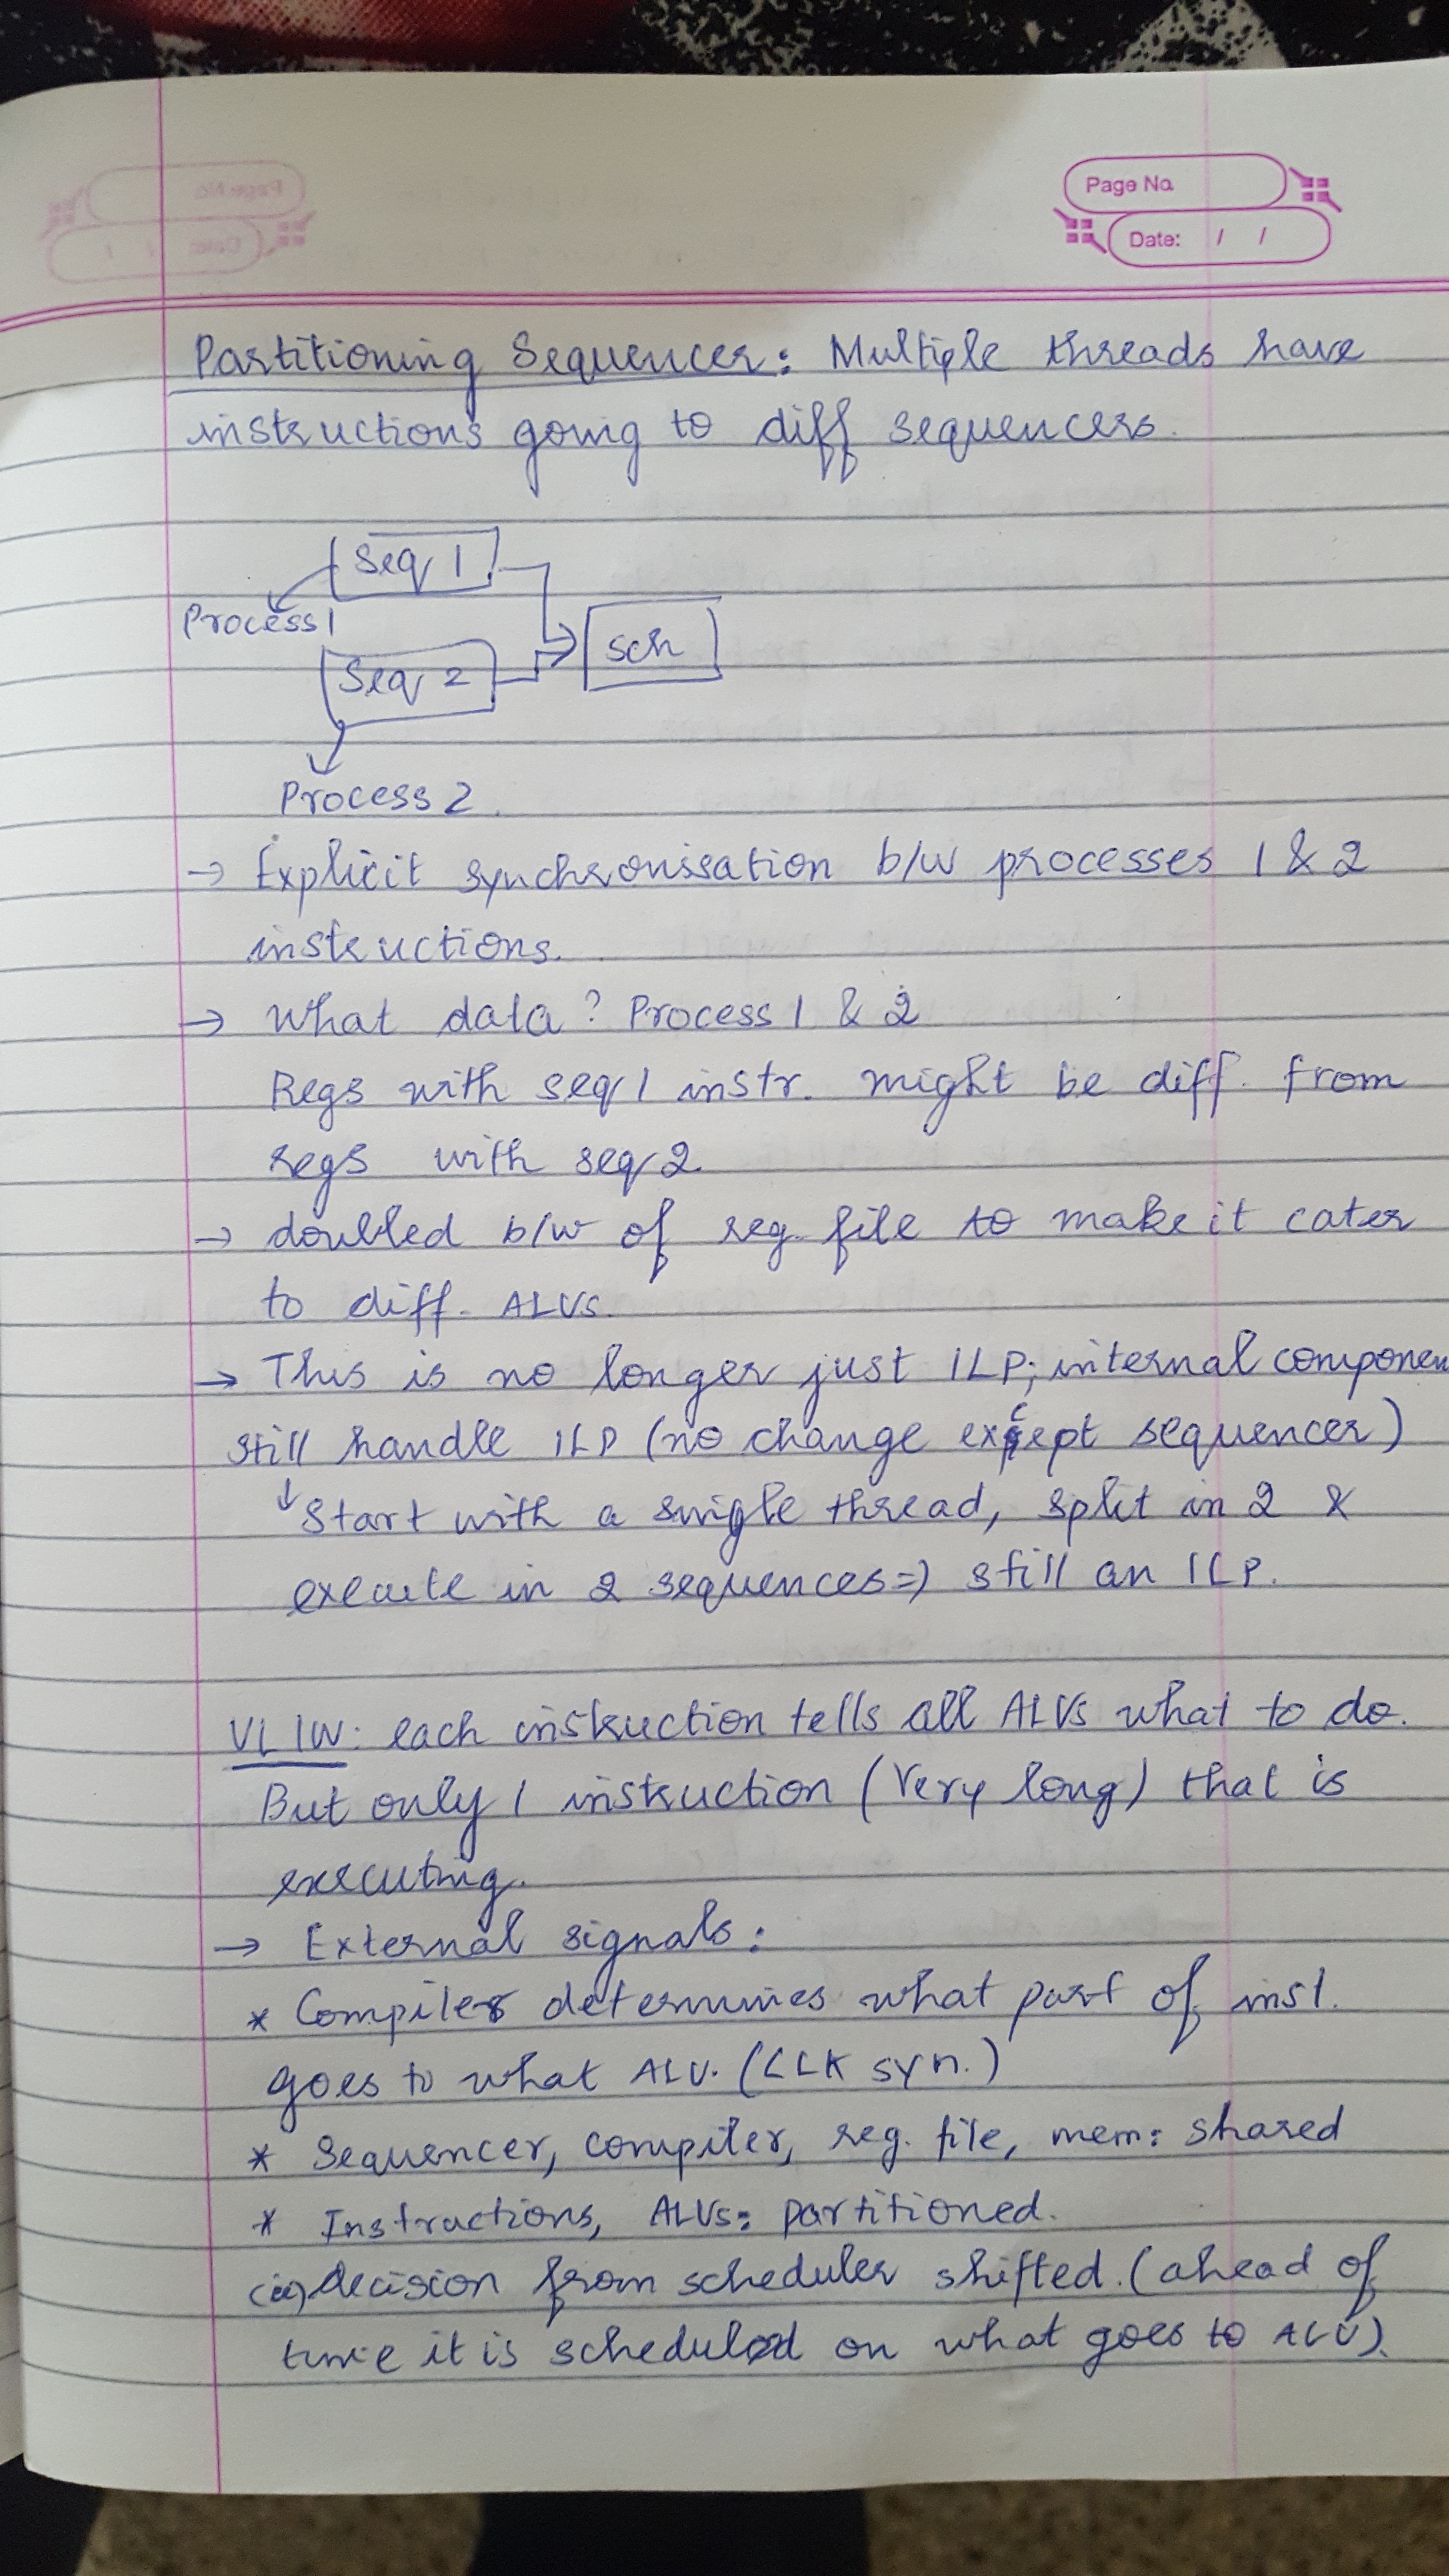 Page No.
Date: / /
Partitioning Sequencer: Multiple threads have
instructions going to diff sequencers.
Seq 1
Process 1
Sch
Seq 2
Process 2
→ Explicit synchronisation b/w processes 1 & 2
instructions.
→ What data? Process 1 & 2
Regs with seq 1 instr. might be diff. from
regs with seq 2.
→ doubled b/w of reg. file to make it cater
to diff. ALUs.
→ This is no longer just ILP; internal componen
still handle ILP (no change except sequencer)
↓ Start with a single thread, split in 2 &
execute in 2 sequences => still an ILP.
VLIW: each instruction tells all ALUs what to do.
But only 1 instruction (Very long) that is
executing.
→ External signals:
* Compiler determines what part of inst.
goes to what ALU. (CLK syn.)
* Sequencer, compiler, reg. file, mem: shared
* Instructions, ALUs: partitioned.
decision from scheduler shifted. (ahead of
time it is scheduled on what goes to ALU).